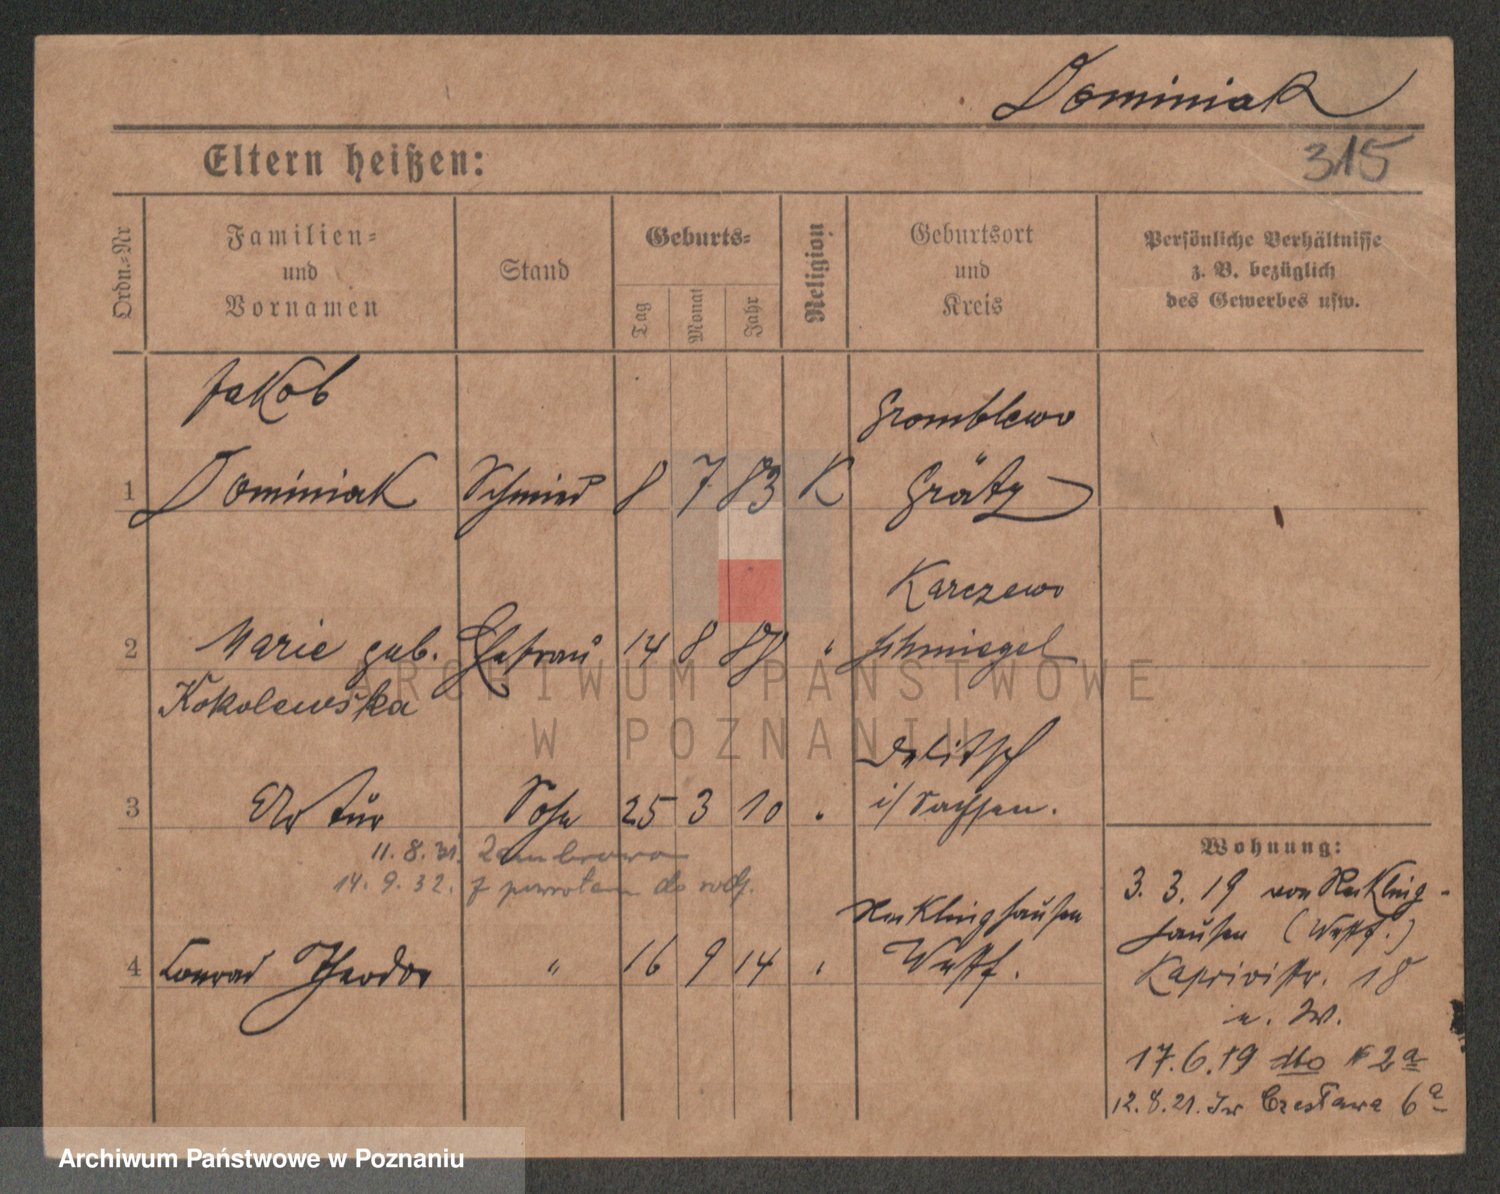 Dominiak
315
Eltern heißen:
Ordn.-Nr
Familien-
und
Vornamen
Stand
Geburts-
Tag
Monat
Jahr
Religion
Geburtsort
und
Kreis
Persönliche Verhältnisse
z. B. bezüglich
des Gewerbes usw.
Jakob
Gromblewo
1 Dominiak Schmied 8 7 83 K Grätz
Karczewo
2 Marie geb. Ehefrau 14 8 " Schmiegel
Kokolewska
Delitsch
3 Artur Sohn 25 3 10 " i/Sachsen.
11.8.31. Zembrowo
14.9.32. z powrotem do rodz.
Recklinghausen
4 Konrad Theodor " 16 9 14 " Westf.
Wohnung:
3.3.19 von Reckling-
hausen (Westf.)
Kaprivistr. 18
17.6.19 dto # 2a
12.8.21. Czesława 6a
ARCHIWUM PAŃSTWOWE
W POZNANIU
Archiwum Państwowe w Poznaniu